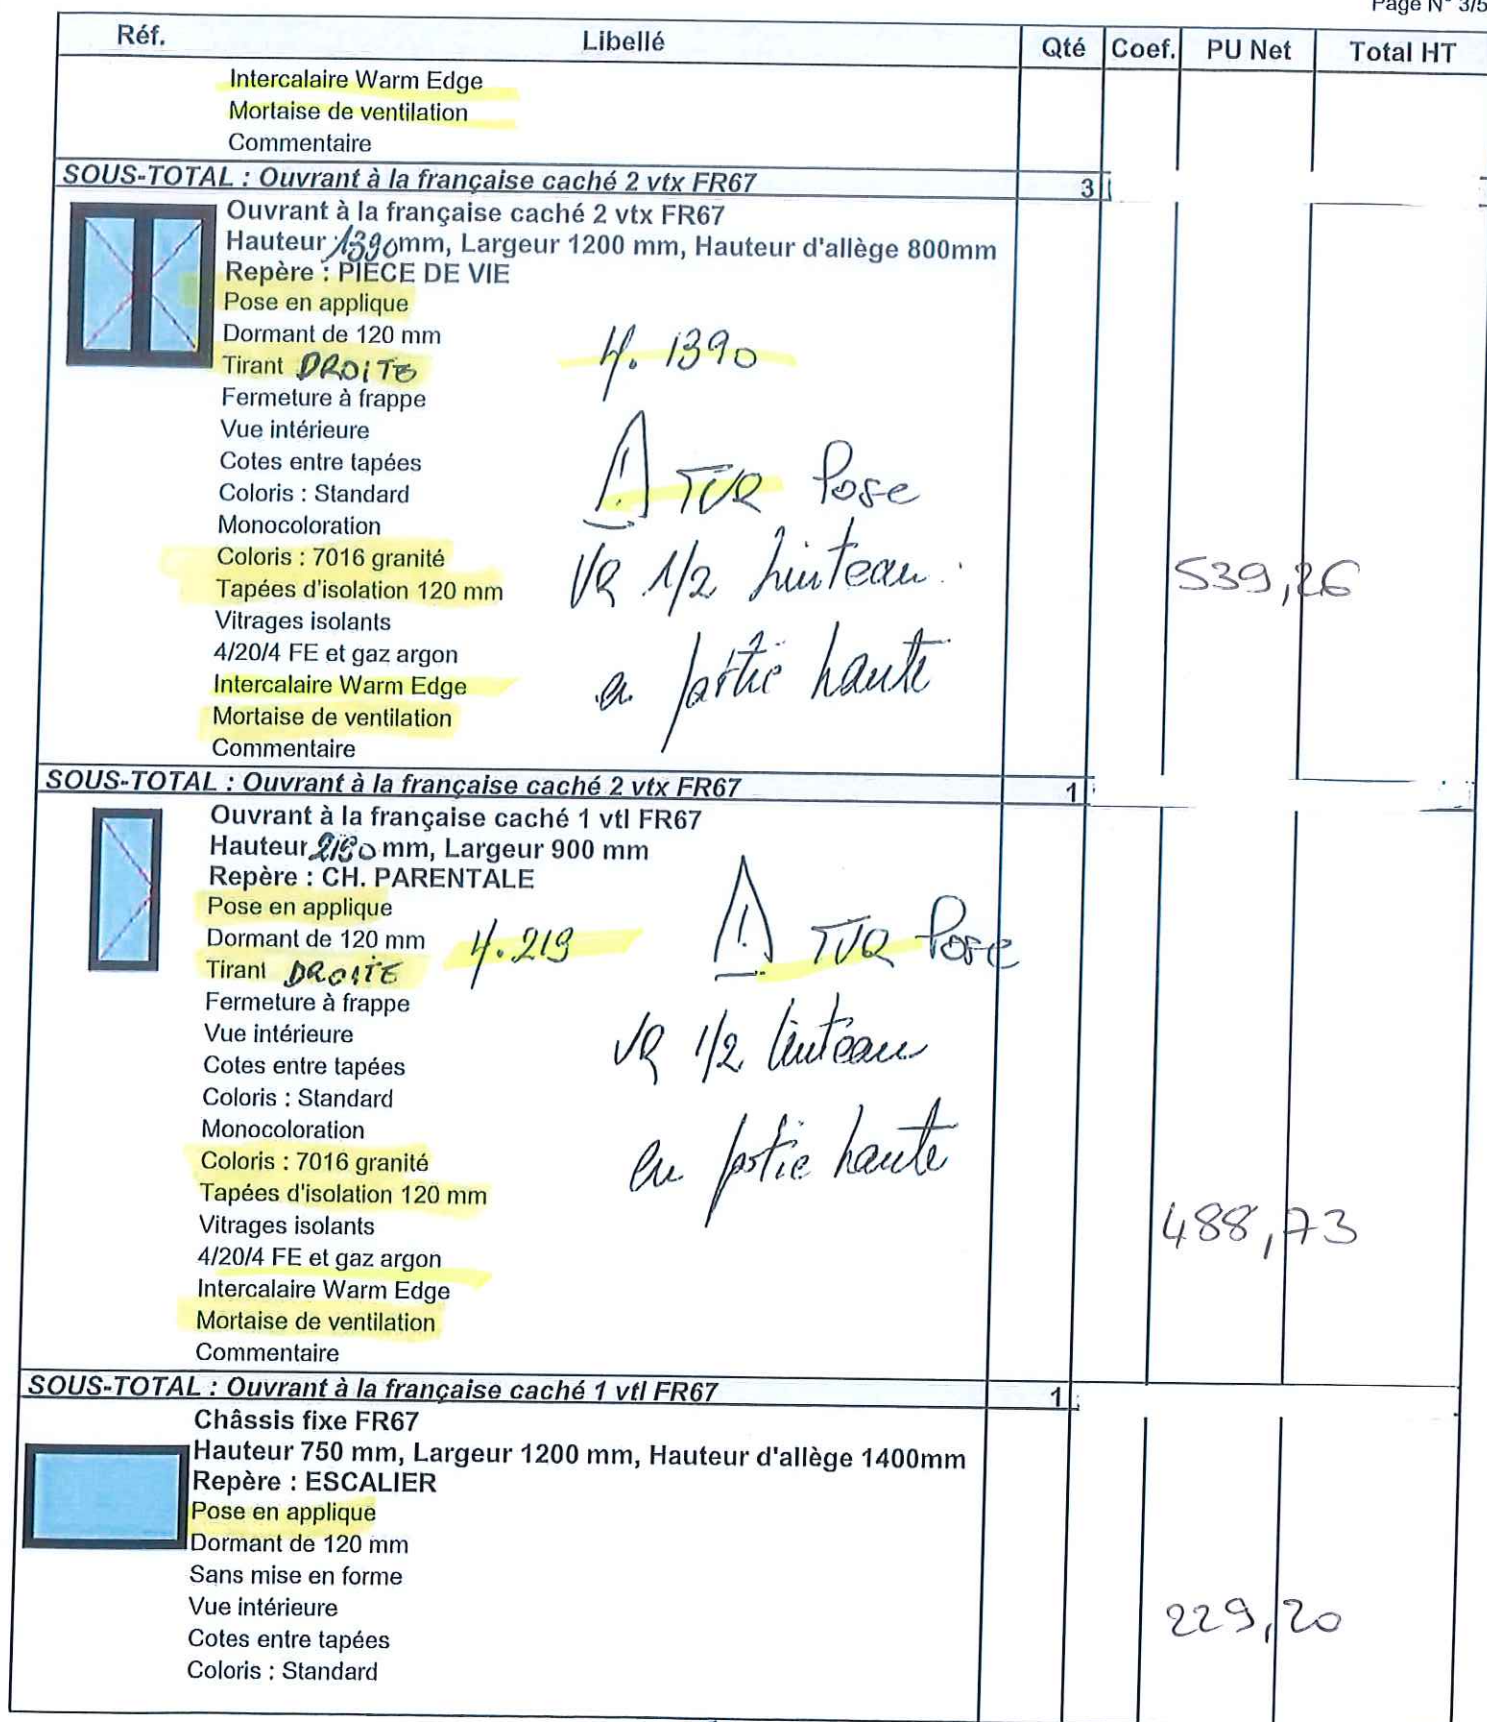 Page N° 3/5
Réf. Libellé Qté Coef. PU Net Total HT
Intercalaire Warm Edge
Mortaise de ventilation
Commentaire
SOUS-TOTAL : Ouvrant à la française caché 2 vtx FR67 3
Ouvrant à la française caché 2 vtx FR67
Hauteur 1390mm, Largeur 1200 mm, Hauteur d'allège 800mm
Repère : PIECE DE VIE
Pose en applique
Dormant de 120 mm
H. 1390
Tirant DROITE
Fermeture à frappe
Vue intérieure
Cotes entre tapées
Coloris : Standard
Pose
Monocoloration
Coloris : 7016 granité
VR 1/2 linteau
539,26
Tapées d'isolation 120 mm
Vitrages isolants
4/20/4 FE et gaz argon
partie haute
Intercalaire Warm Edge
Mortaise de ventilation
Commentaire
SOUS-TOTAL : Ouvrant à la française caché 2 vtx FR67 1
Ouvrant à la française caché 1 vtl FR67
Hauteur 2190 mm, Largeur 900 mm
Repère : CH. PARENTALE
Pose en applique
Dormant de 120 mm
H. 219
Pose
Tirant DROITE
Fermeture à frappe
Vue intérieure
VR 1/2 linteau
Cotes entre tapées
Coloris : Standard
Monocoloration
Coloris : 7016 granité
en partie haute
Tapées d'isolation 120 mm
Vitrages isolants
488,73
4/20/4 FE et gaz argon
Intercalaire Warm Edge
Mortaise de ventilation
Commentaire
SOUS-TOTAL : Ouvrant à la française caché 1 vtl FR67 1
Châssis fixe FR67
Hauteur 750 mm, Largeur 1200 mm, Hauteur d'allège 1400mm
Repère : ESCALIER
Pose en applique
Dormant de 120 mm
Sans mise en forme
Vue intérieure
229,20
Cotes entre tapées
Coloris : Standard